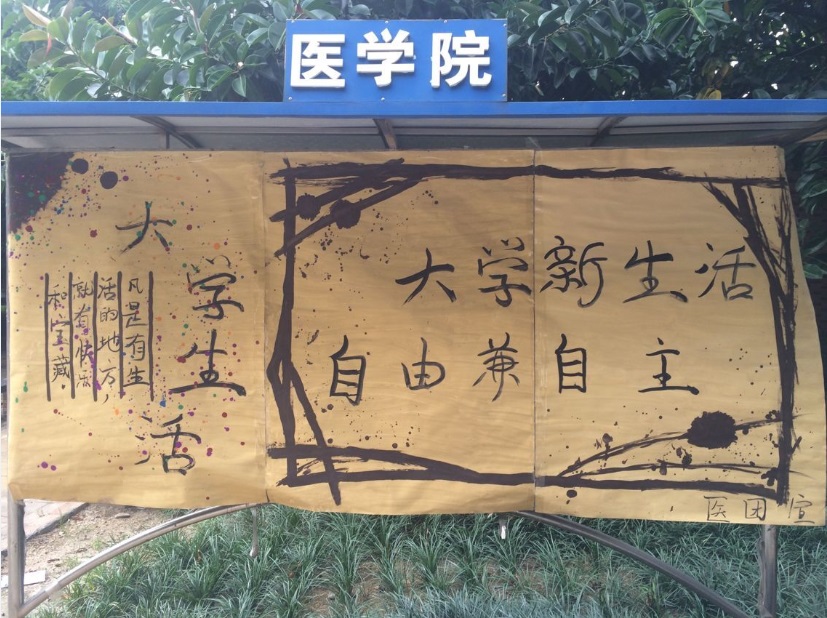 医学院
大学生活
凡是有生
活的地方，
就有快活
和宝藏
大学新生活
自由兼自主
医团宣